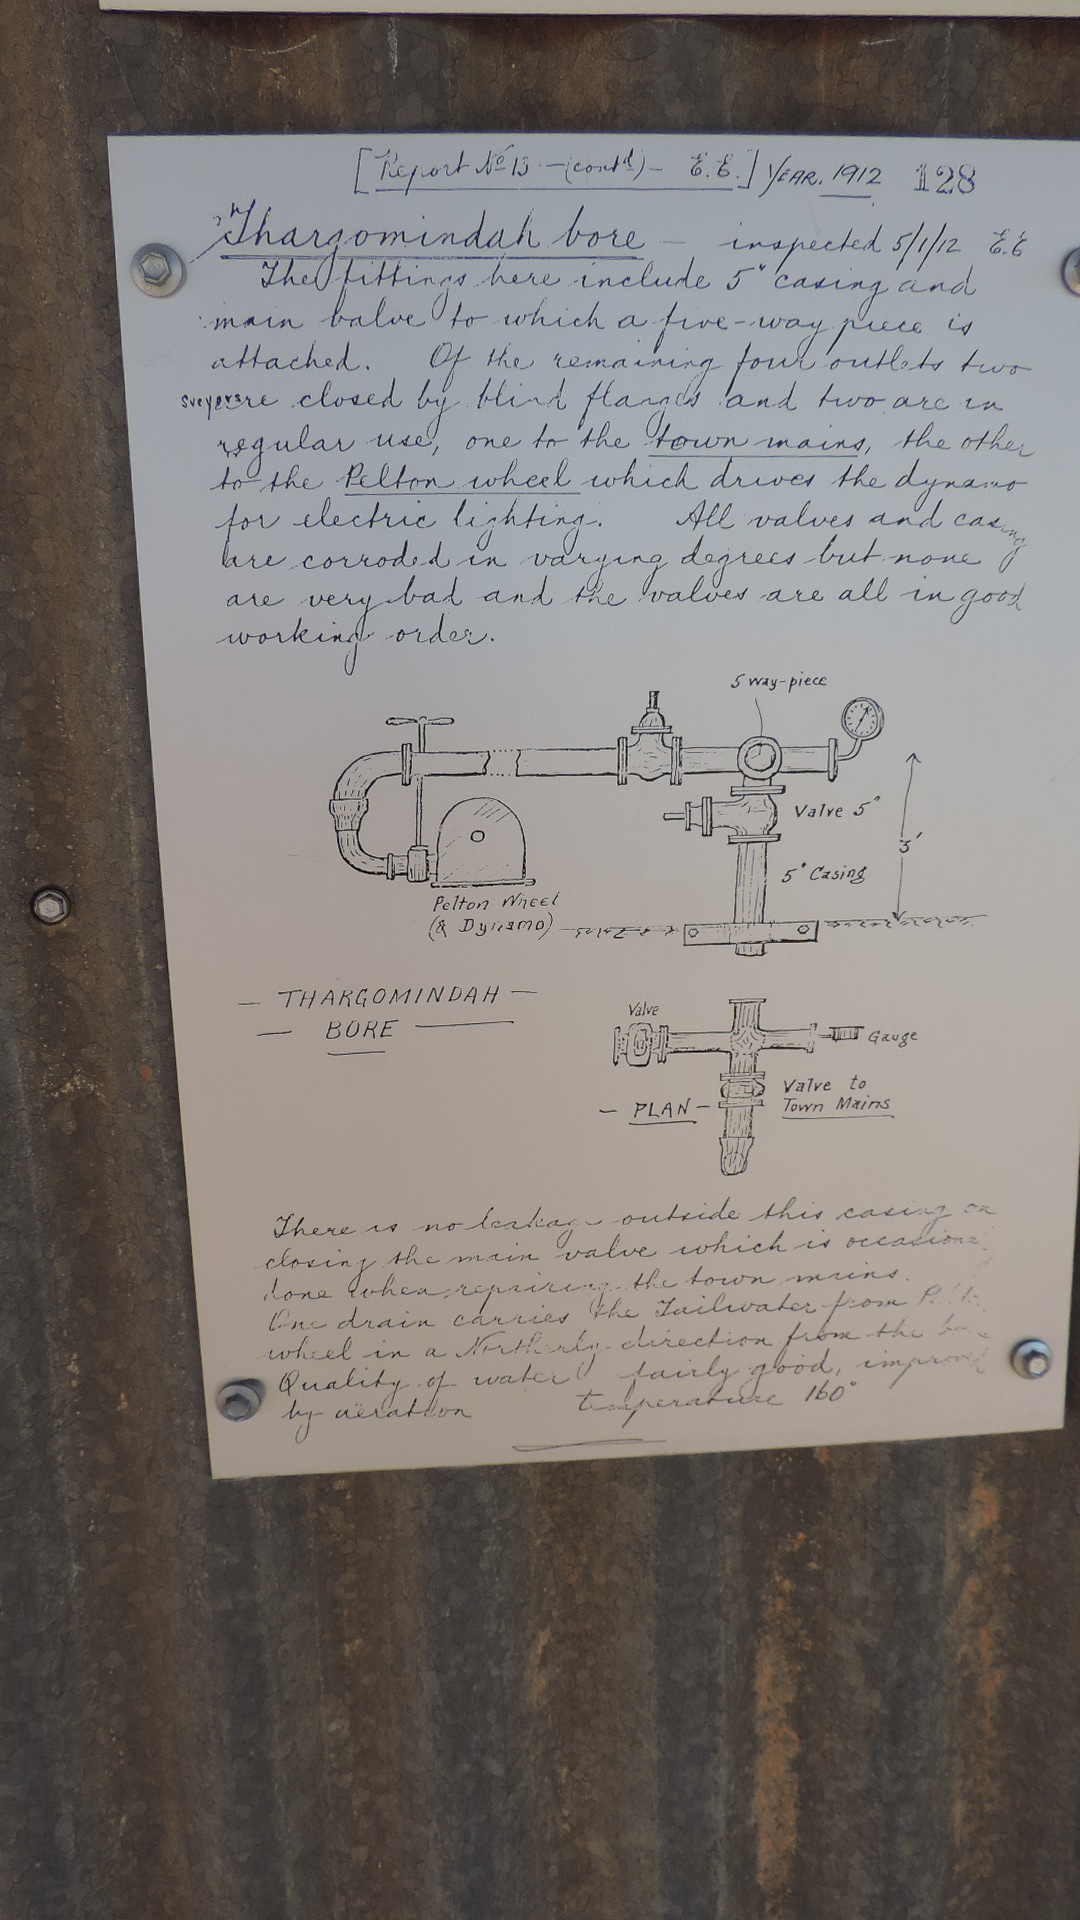 [Report No 13 - (contd) - E.E.] YEAR. 1912 128
Thargomindah bore - inspected 5/1/12 E.E
The fittings here include 5" casing and
main valve to which a five-way piece is
attached. Of the remaining four outlets two
are closed by blind flanges and two are in
regular use, one to the town mains, the other
to the Pelton wheel which drives the dynamo
for electric lighting. All valves and casing
are corroded in varying degrees but none
are very bad and the valves are all in good
working order.
5 way-piece
Valve 5"
5'
5" Casing
Pelton Wheel
(& Dynamo)
- THARGOMINDAH -
- BORE -
Valve
Gauge
Valve to
- PLAN - Town Mains
There is no leakage outside this casing on
closing the main valve which is
done when repairing the town mains.
One drain carries the Tailwater from
wheel in a Northerly direction from the
Quality of water fairly good, improved
by aeration temperature 160°